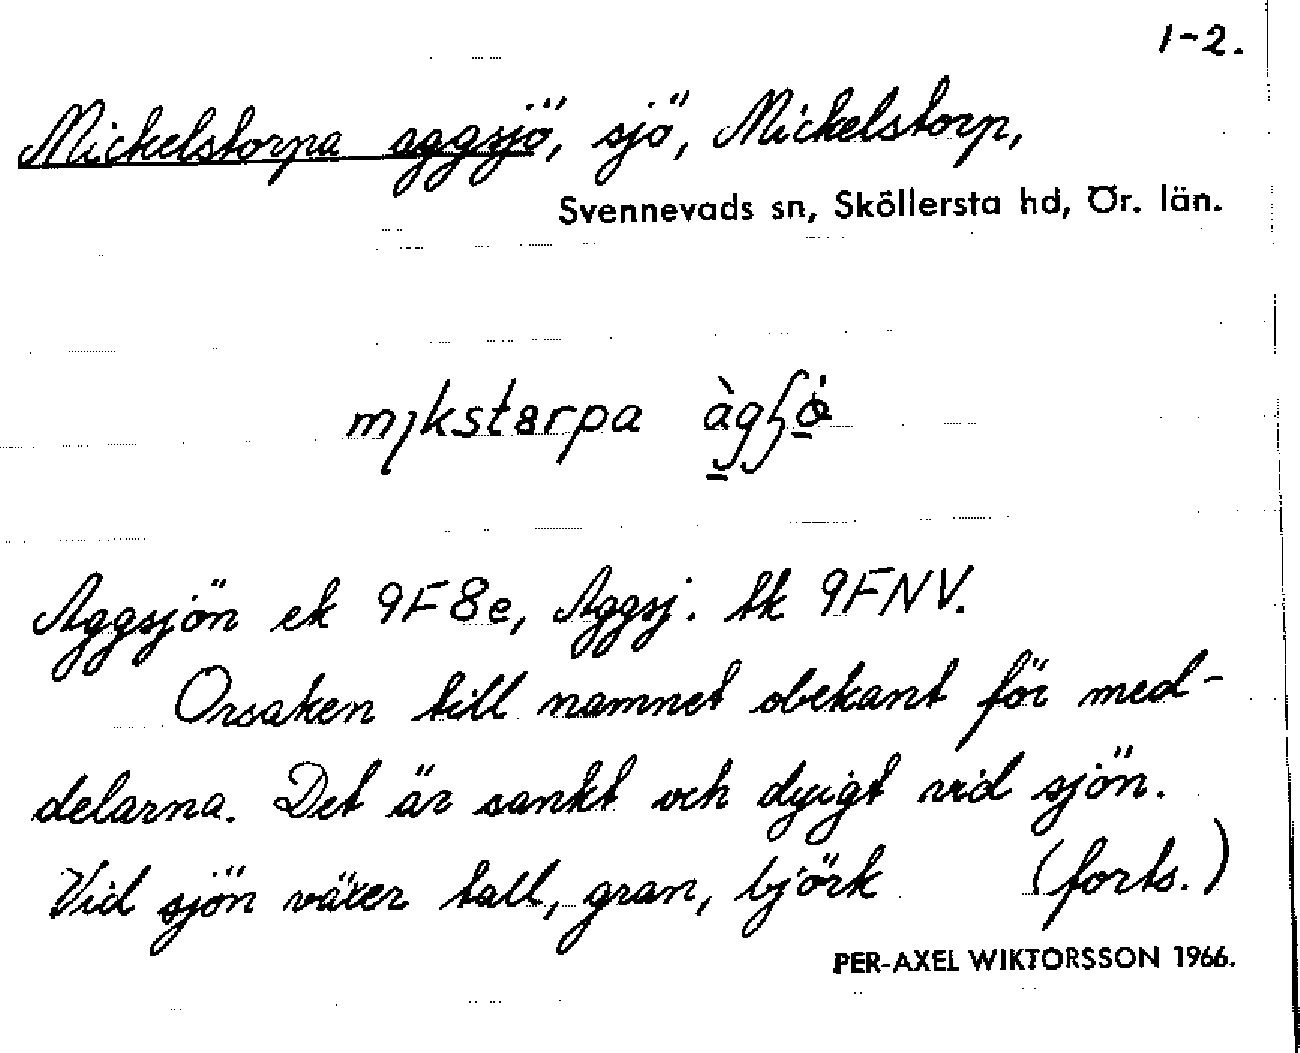 1-2.
Mickelstorpa aggsjö, sjö, Mickelstorp,
Svennevads sn, Sköllersta hd, Ör. län.
Aggsjön ek 9F8e, Aggsj. tk 9FNV.
Orsaken till namnet obekant för med-
delarna. Det är sankt och dyigt vid sjön.
Vid sjön växer tall, gran, björk (forts.)
PER-AXEL WIKTORSSON 1966.